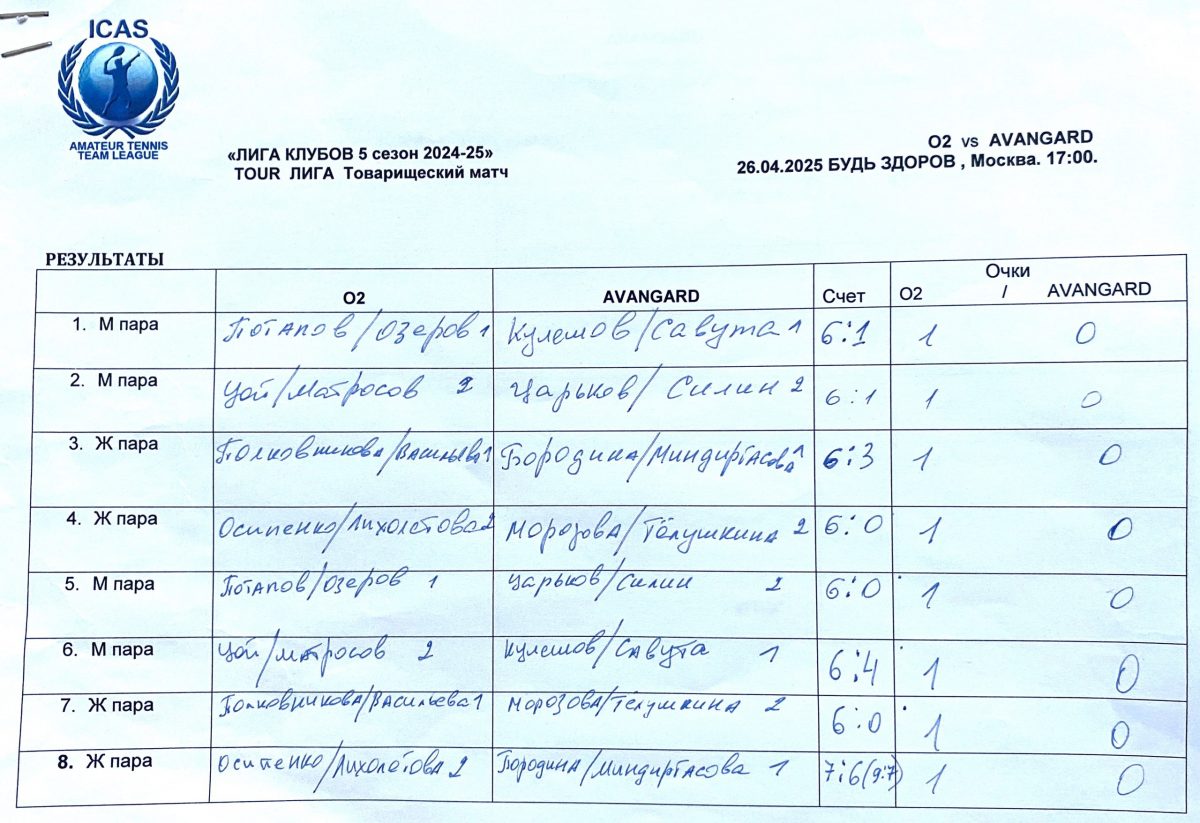 ICAS
AMATEUR TENNIS
TEAM LEAGUE
«ЛИГА КЛУБОВ 5 сезон 2024-25»
TOUR ЛИГА Товарищеский матч
O2 vs AVANGARD
26.04.2025 БУДЬ ЗДОРОВ , Москва. 17:00.
РЕЗУЛЬТАТЫ
O2 AVANGARD Счет Очки
O2 / AVANGARD
1. М пара Потапов/Озеров 1 Кулешов/Савута 1 6:1 1 0
2. М пара Цой/Матросов 2 Царьков/Силин 2 6:1 1 0
3. Ж пара Полковникова/Васильева 1 Бородина/Миндиргасова 1 6:3 1 0
4. Ж пара Осипенко/Лихолетова 2 Морозова/Тёлушкина 2 6:0 1 0
5. М пара Потапов/Озеров 1 Царьков/Силин 2 6:0 1 0
6. М пара Цой/Матросов 2 Кулешов/Савута 1 6:4 1 0
7. Ж пара Полковникова/Васильева 1 Морозова/Тёлушкина 2 6:0 1 0
8. Ж пара Осипенко/Лихолётова 2 Бородина/Миндиргасова 1 7:6(9:7) 1 0